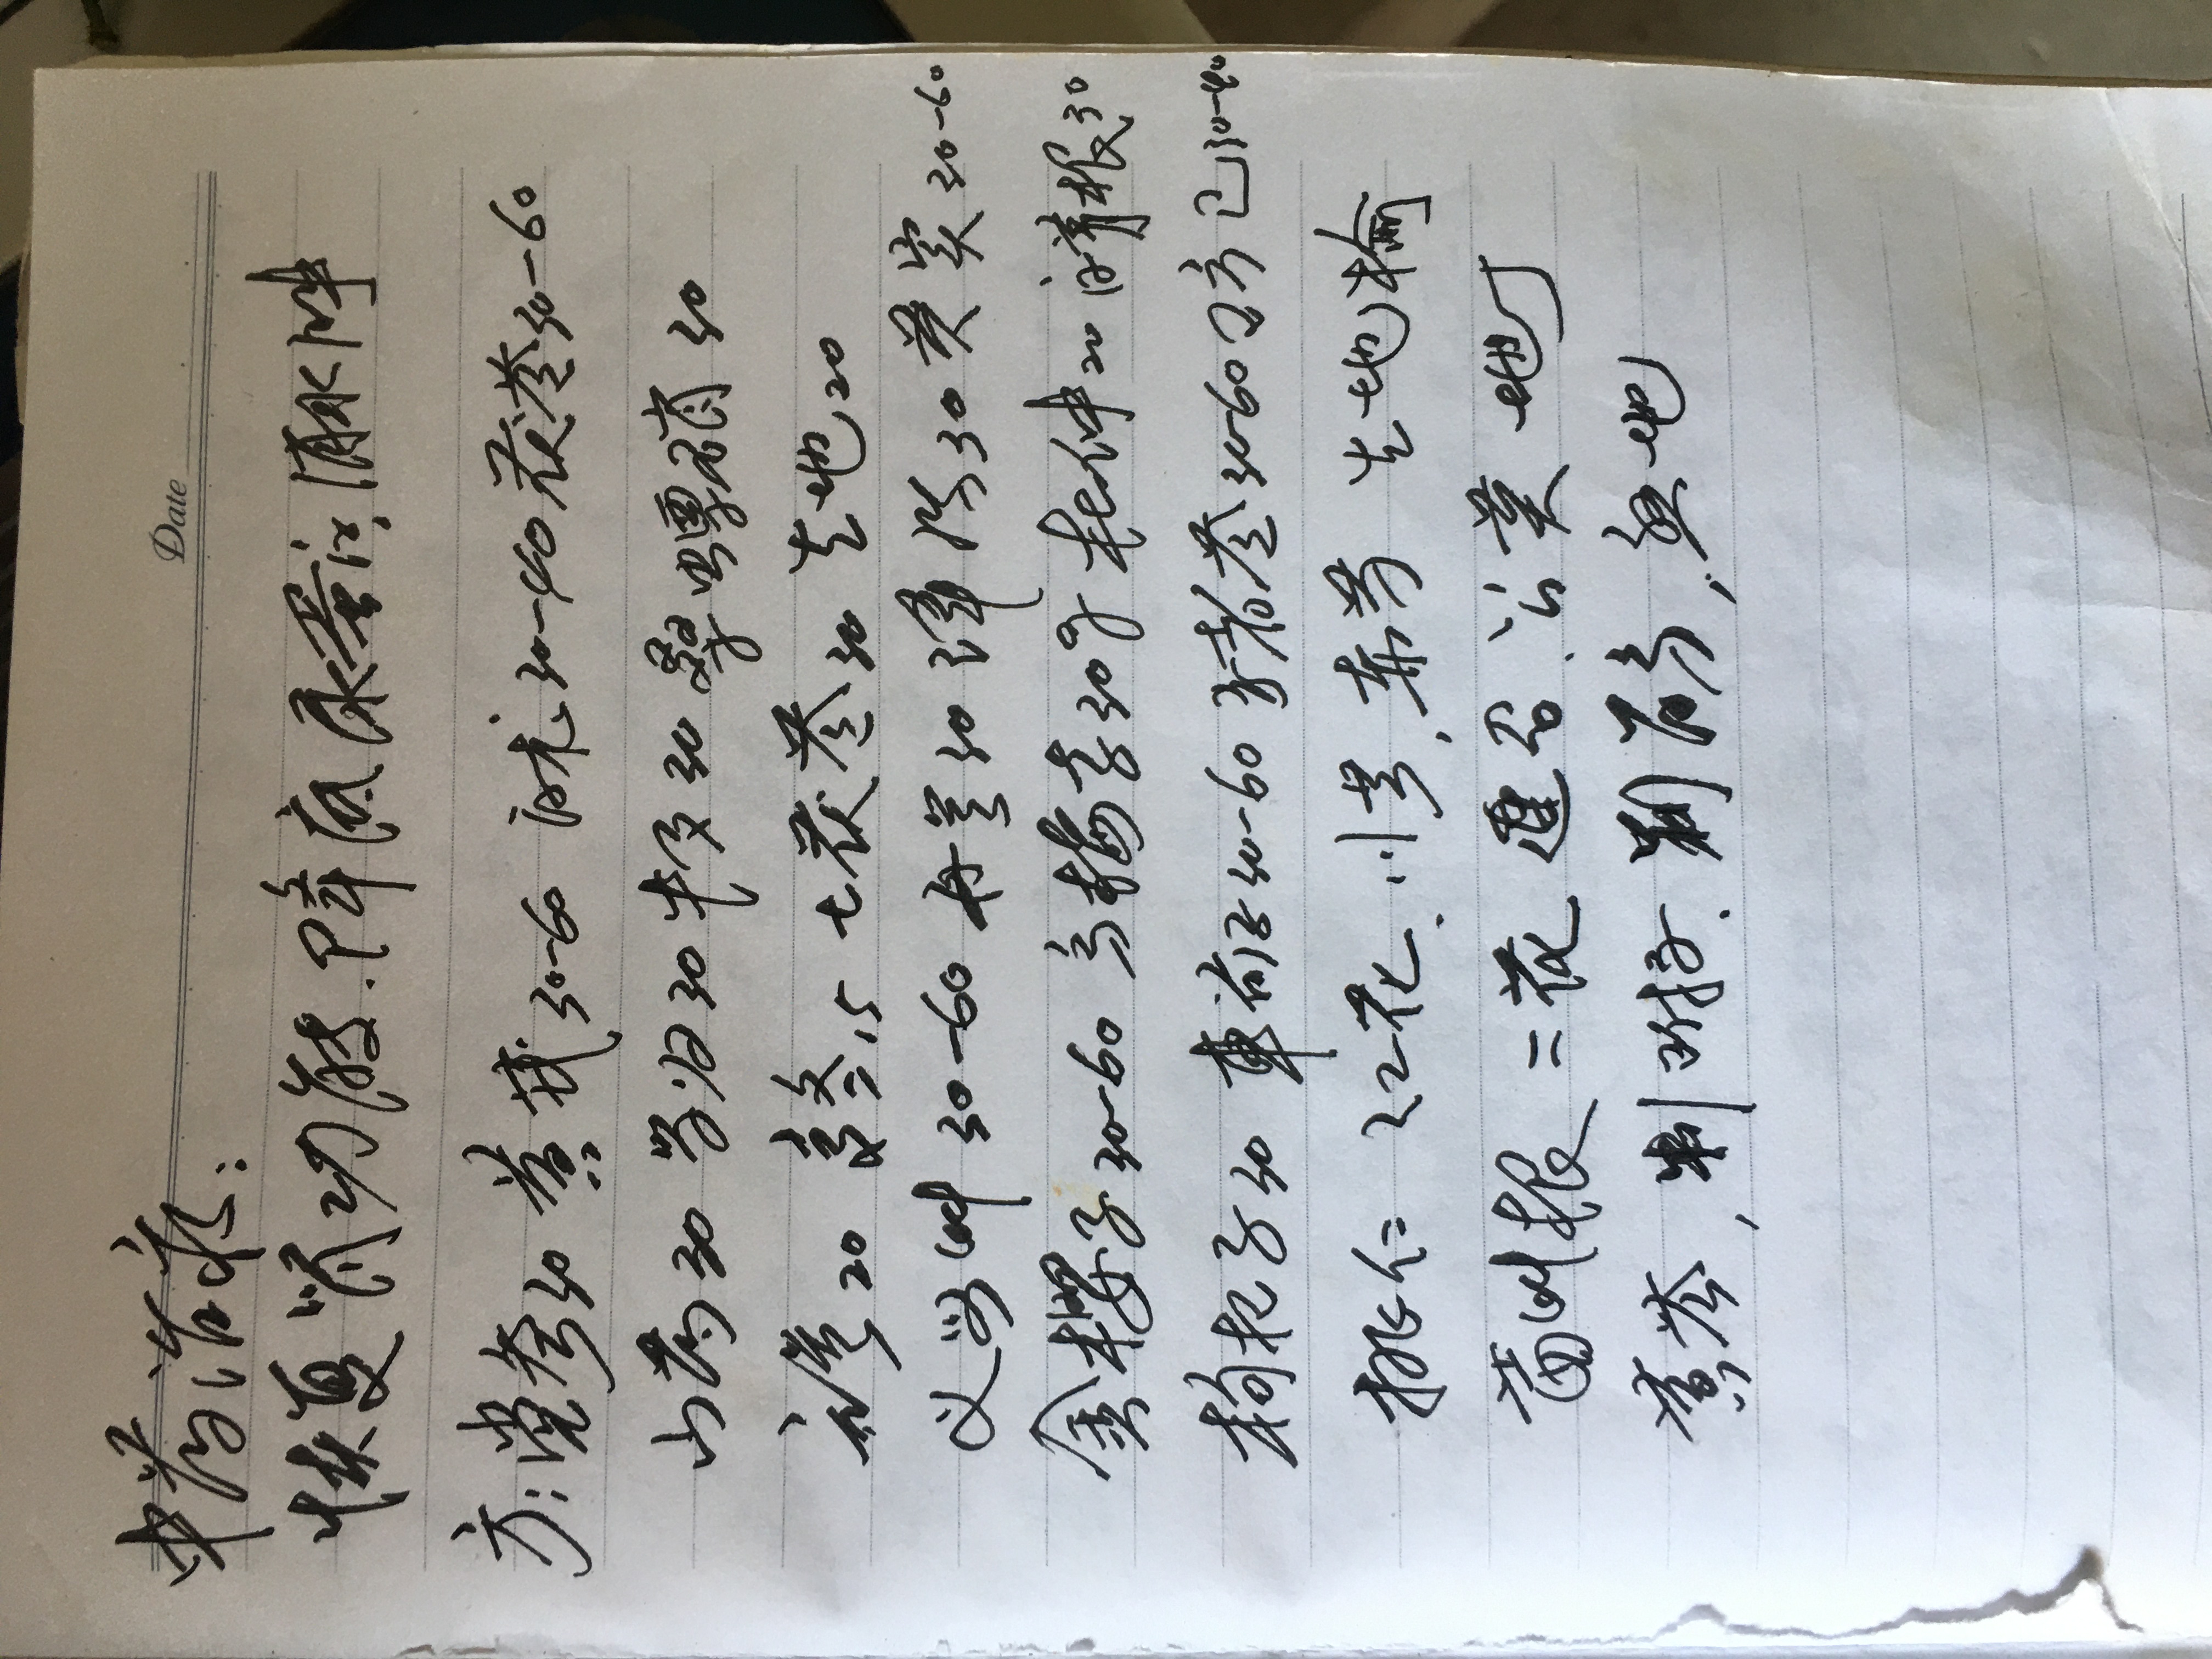 Date
中药治疗:
恢复肾功能.降底尿蛋白,消水肿
方:党参30 黄芪30-60 白术30-40 茯苓30-60
山药30 当归30 牛夕30 桑螵硝30
15 土茯苓30 生地20
义母叫 30-60 丹参30 泽泻30 芡实30-60
金樱子30-60 乌梅
30g 杜仲20 根30
枸杞子30 車前子30-60 猪苓30-60 方己30-40
桃仁 红花.川芎,赤芍 生地榆
茜叫根 二花 連召.公英 地丁
黄芩,制附子.制,熟地